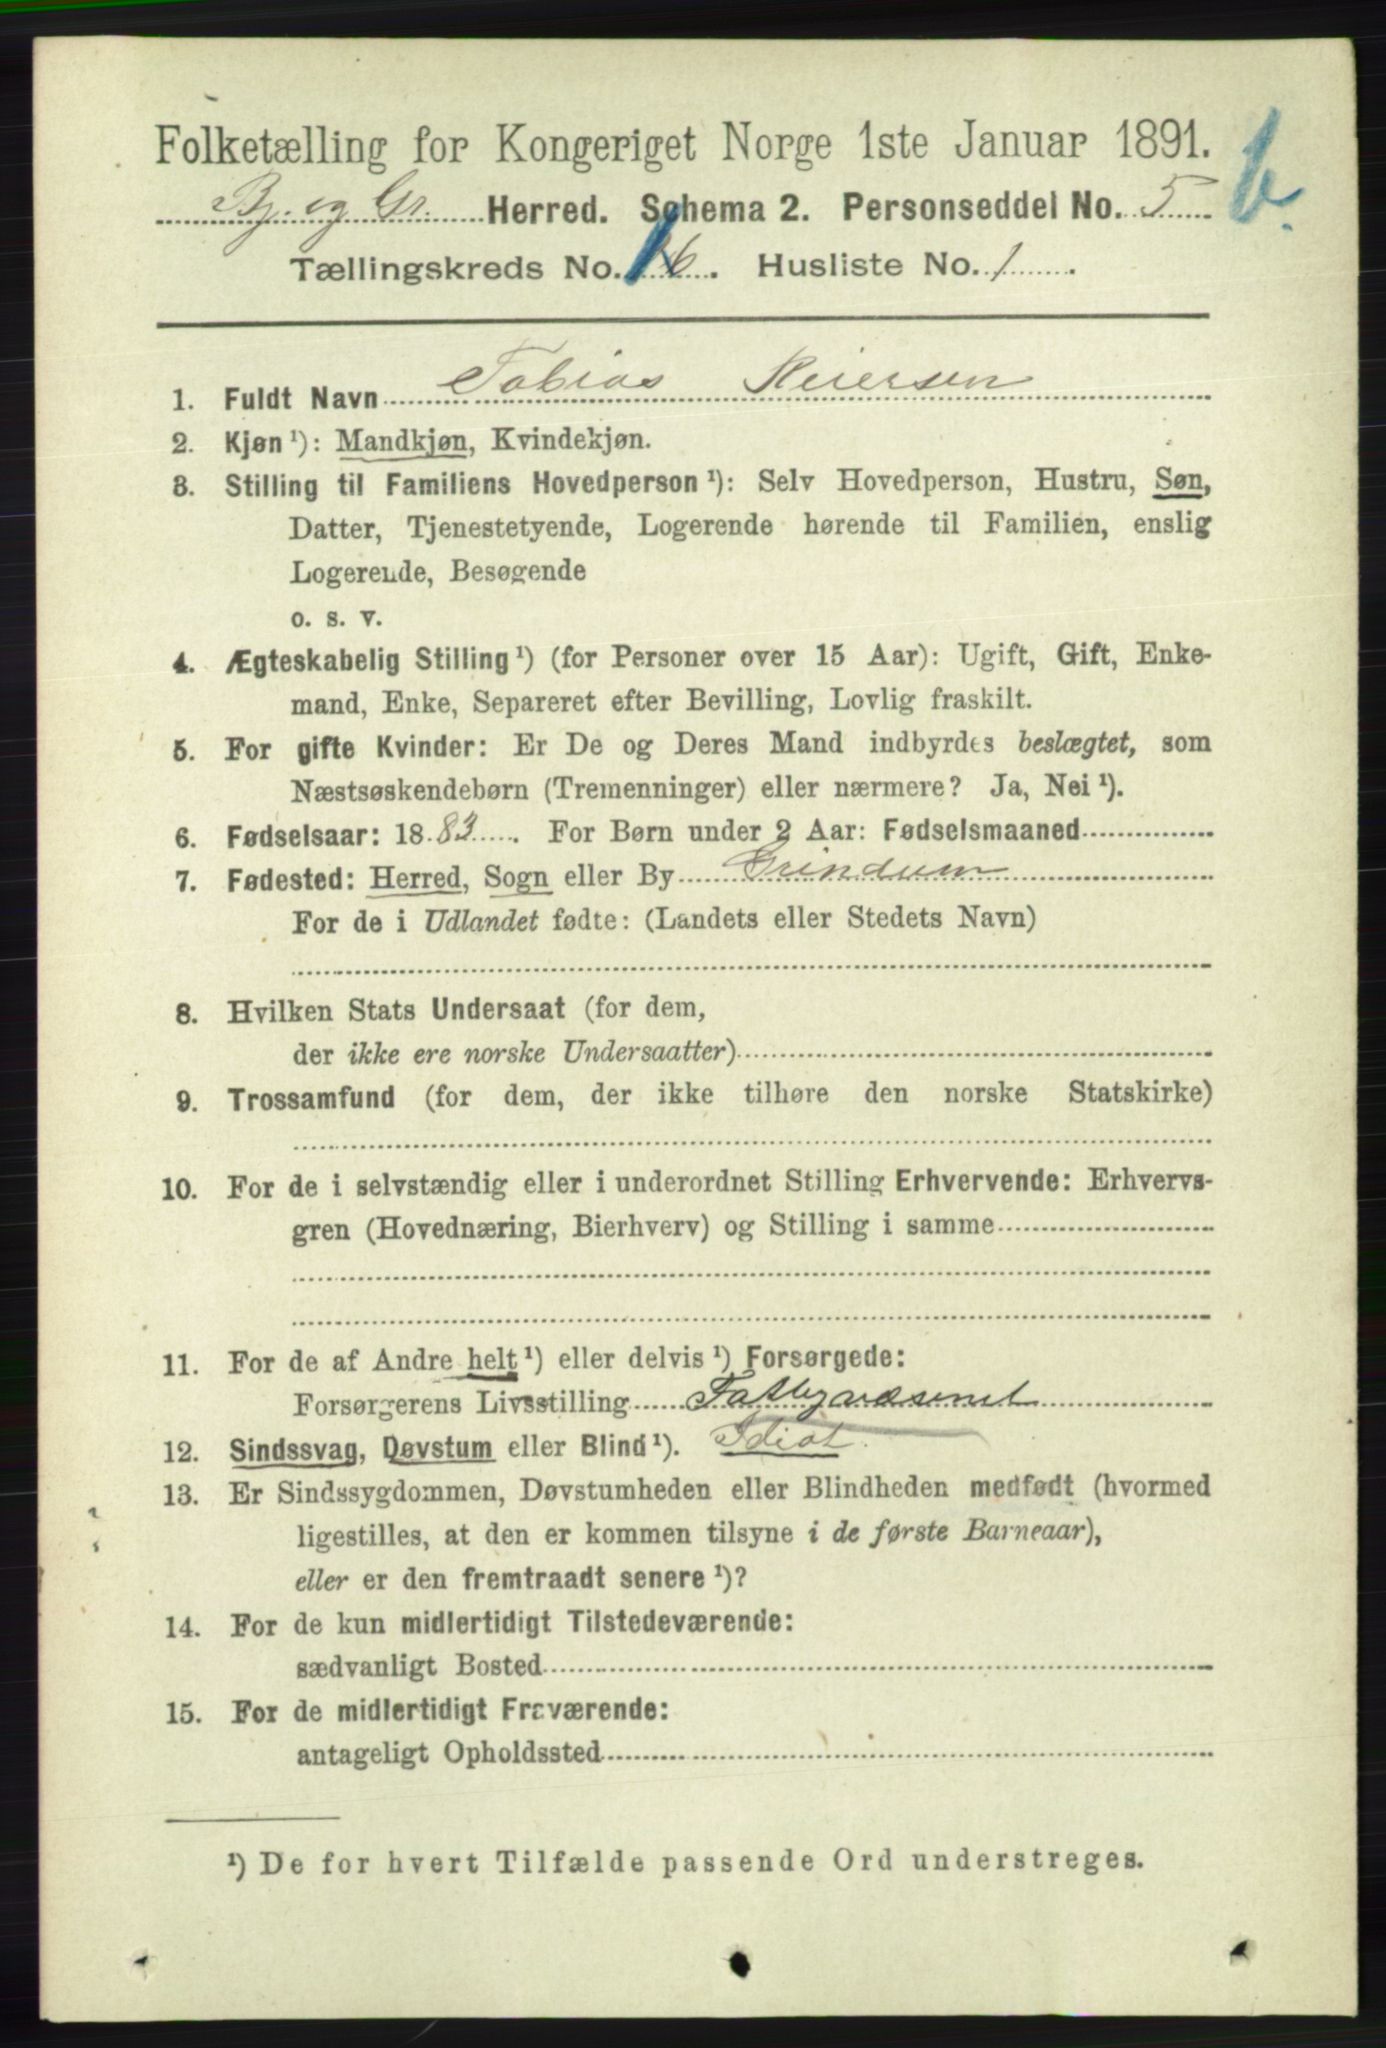 Folketælling for Kongeriget Norge 1ste Januar 1891.
Bj. og Gr. Herred. Schema 2. Personseddel No. 5
b.
Tællingskreds No. 6. Husliste No. 1.
1. Fuldt Navn Tobias Reiersen
2. Kjøn ¹): Mandkjøn, Kvindekjøn.
3. Stilling til Familiens Hovedperson ¹): Selv Hovedperson, Hustru, Søn,
Datter, Tjenestetyende, Logerende hørende til Familien, enslig
Logerende, Besøgende
o. s. v.
4. Ægteskabelig Stilling ¹) (for Personer over 15 Aar): Ugift, Gift, Enke-
mand, Enke, Separeret efter Bevilling, Lovlig fraskilt.
5. For gifte Kvinder: Er De og Deres Mand indbyrdes beslægtet, som
Næstsøskendebørn (Tremenninger) eller nærmere? Ja, Nei ¹).
6. Fødselsaar: 1883. For Børn under 2 Aar: Fødselsmaaned
7. Fødested: Herred, Sogn eller By Grindum
For de i Udlandet fødte: (Landets eller Stedets Navn)
8. Hvilken Stats Undersaat (for dem,
der ikke ere norske Undersaatter)
9. Trossamfund (for dem, der ikke tilhøre den norske Statskirke)
10. For de i selvstændig eller i underordnet Stilling Erhvervende: Erhvervs-
gren (Hovednæring, Bierhverv) og Stilling i samme
11. For de af Andre helt ¹) eller delvis ¹) Forsørgede:
Forsørgerens Livsstilling
12. Sindssvag, Døvstum eller Blind ¹). Idiot.
13. Er Sindssygdommen, Døvstumheden eller Blindheden medfødt (hvormed
ligestilles, at den er kommen tilsyne i de første Barneaar),
eller er den fremtraadt senere ¹)?
14. For de kun midlertidigt Tilstedeværende:
sædvanligt Bosted
15. For de midlertidigt Fraværende:
antageligt Opholdssted
¹) De for hvert Tilfælde passende Ord understreges.